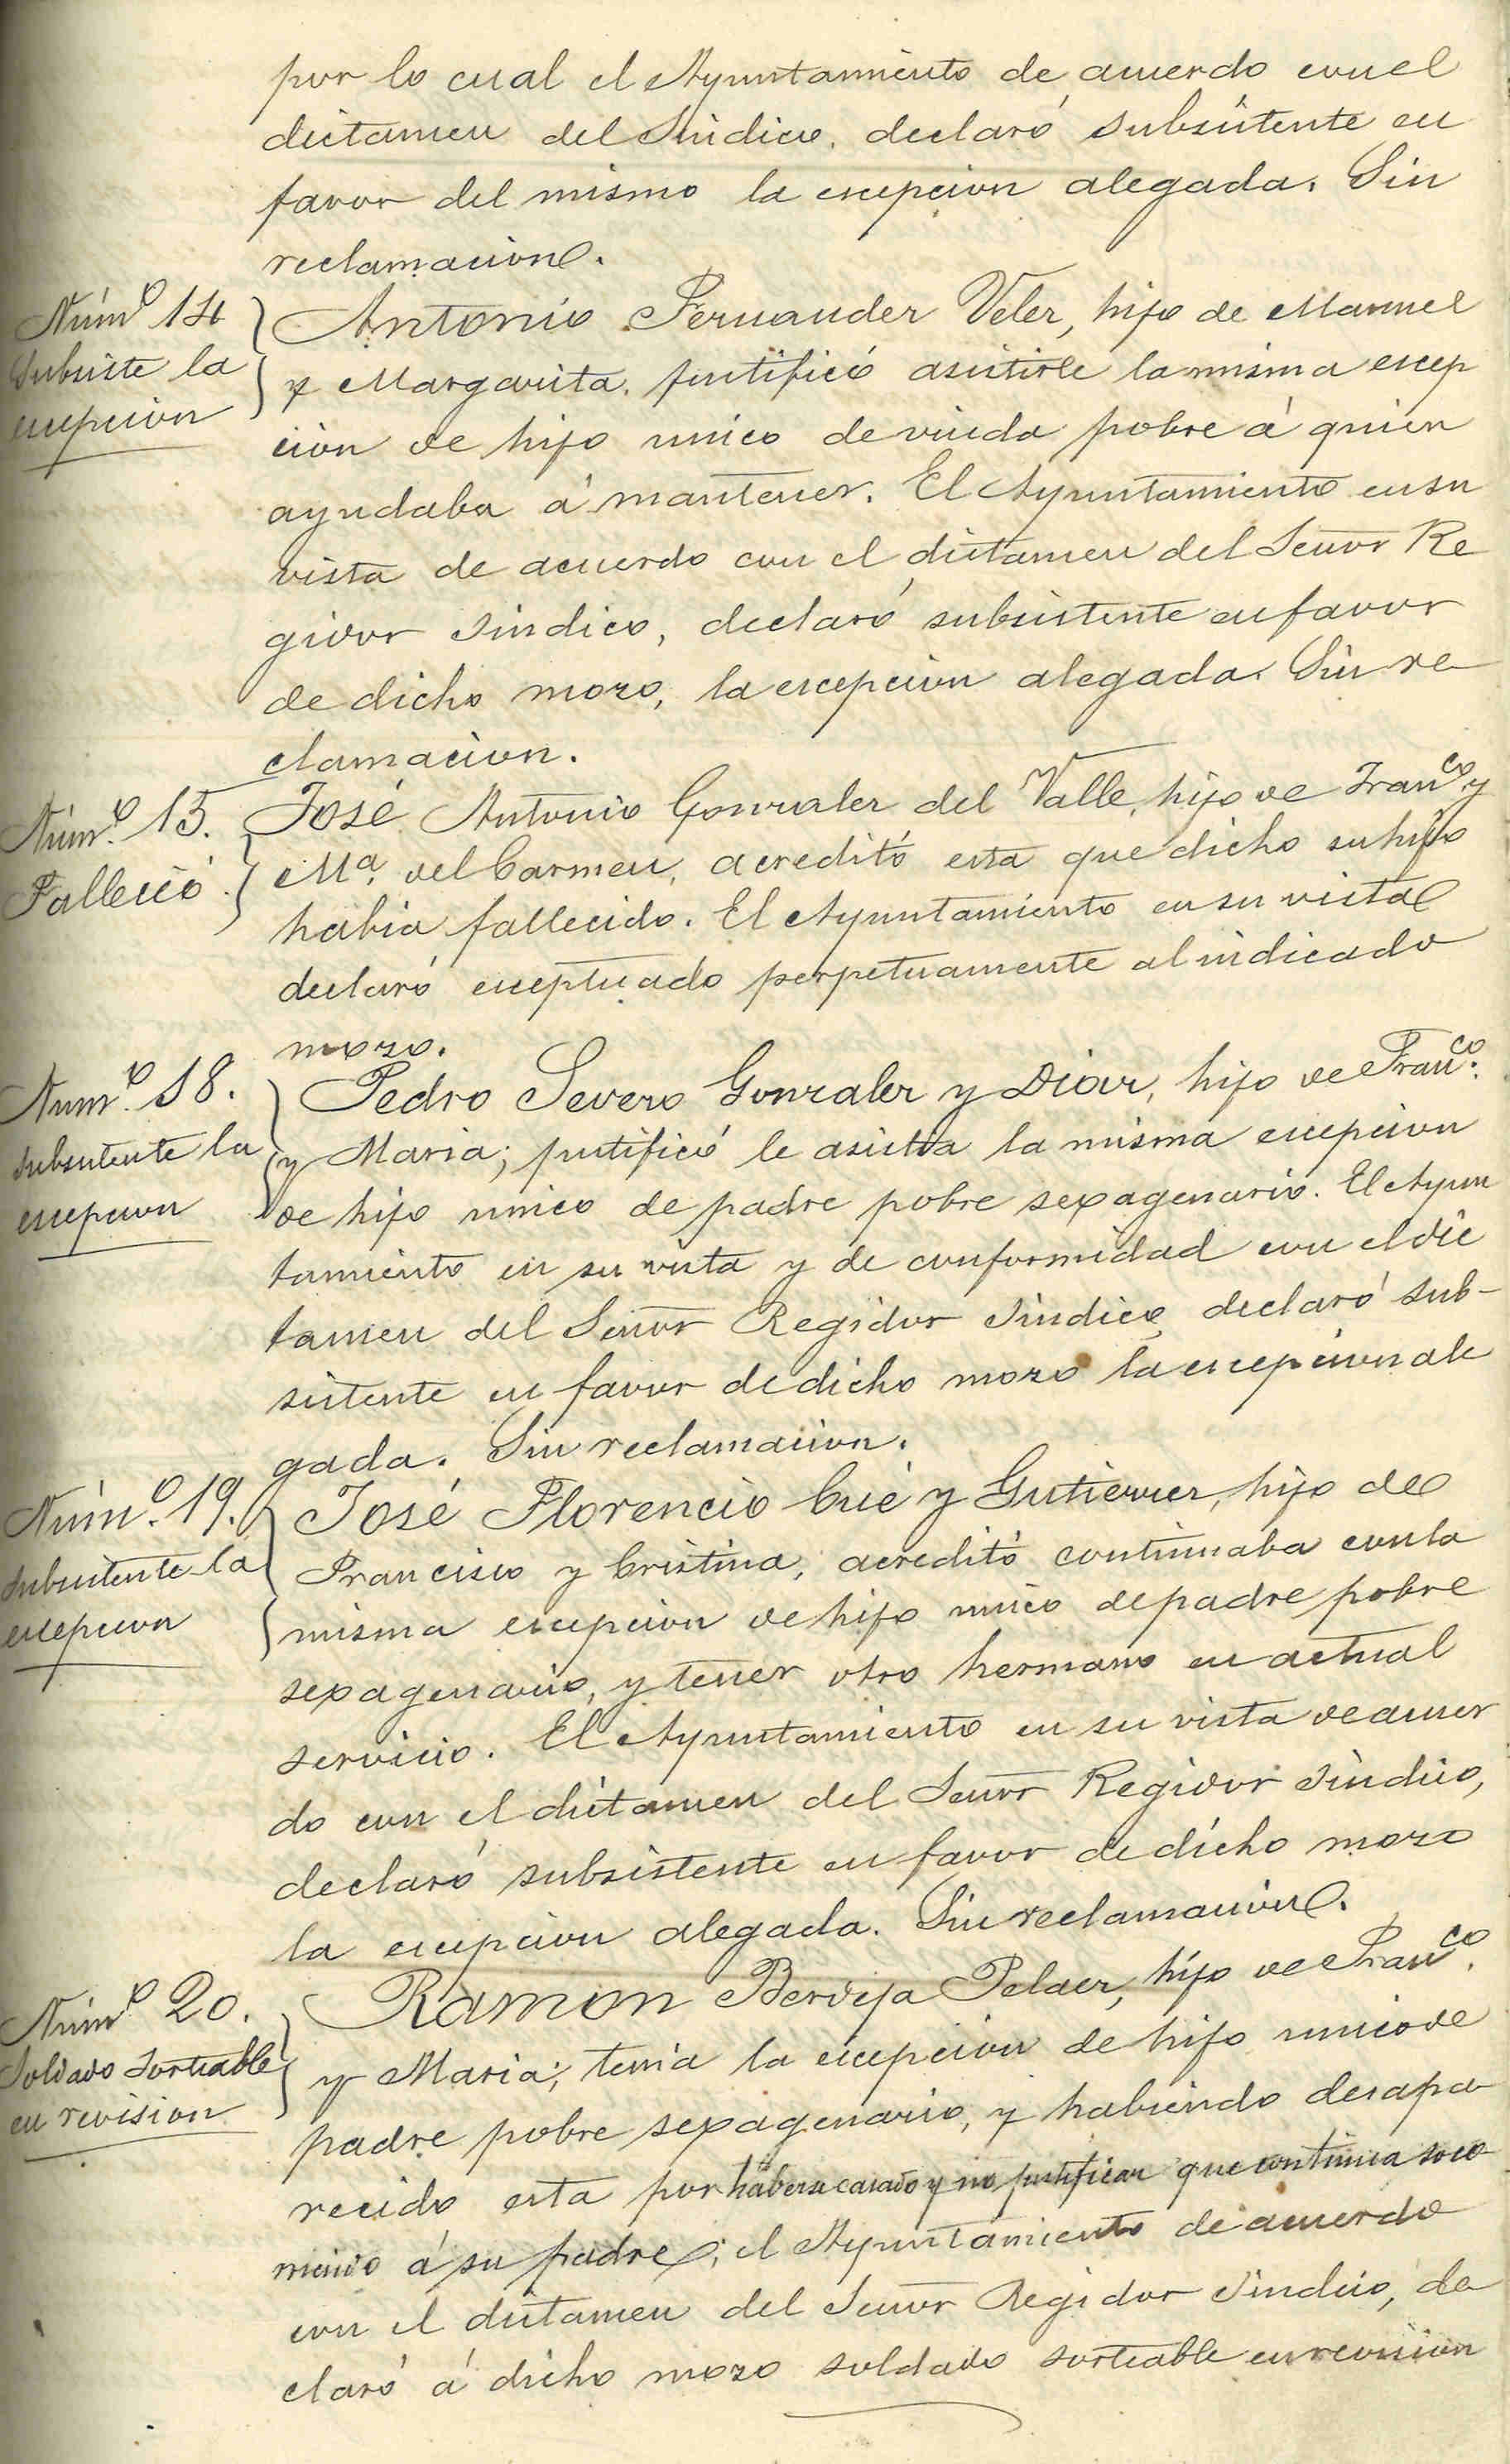 por lo cual el Ayuntamiento de acuerdo con el
dictamen del Sindico, declaró subsistente en
favor del mismo la escepcion alegada. Sin
reclamacion.
Núm.º 14
Subsiste la
escepcion
Antonio Fernandez Velez, hijo de Manuel
y Margarita, justificó asistirle la misma escep
cion de hijo unico de viuda pobre á quien
ayudaba á mantener. El Ayuntamiento en su
vista de acuerdo con el dictamen del Señor Re
gidor Sindico, declaró subsistente en favor
de dicho mozo, la escepcion alegada. Sin re
clamacion.
Núm.º 15.
Falleció
José Antonio Gonzalez del Valle, hijo de Fran.co y
M.a del Carmen, acreditó esta que dicho su hijo
habia fallecido. El Ayuntamiento en su vista
declaró esceptuado perpetuamente al indicado
mozo.
Num.º 18.
subsistente la
escepcion
Pedro Severo Gonzalez y Diaz, hijo de Fran.co
y Maria; justificó le asistia la misma escepcion
de hijo unico de padre pobre sexagenario. El Ayun
tamiento en su vista y de conformidad con el dic
tamen del Señor Regidor Sindico declaró sub-
sistente en favor de dicho mozo la escepcion ale
gada. Sin reclamacion.
Núm.º 19.
subsistente la
escepcion
José Florencio Cué y Gutierrez, hijo de
Francisco y Cristina, acreditó continuaba con la
misma escepcion de hijo unico de padre pobre
sexagenario, y tener otro hermano en actual
servicio. El Ayuntamiento en su vista de acuer
do con el dictamen del Señor Regidor Sindico,
declaró subsistente en favor de dicho mozo
la escepcion alegada. Sin reclamacion.
Núm.º 20.
Soldado Sorteable
en revision
Ramon Berdeja Pelaez, hijo de Fran.co
y Maria; tenia la escepcion de hijo unico de
padre pobre sexagenario, y habiendo desapa
recido esta por haberse casado y no justificar que continúa soco
rriendo á su padre; el Ayuntamiento de acuerdo
con el dictamen del Señor Regidor Sindico, de
claró á dicho mozo soldado sorteable en revision